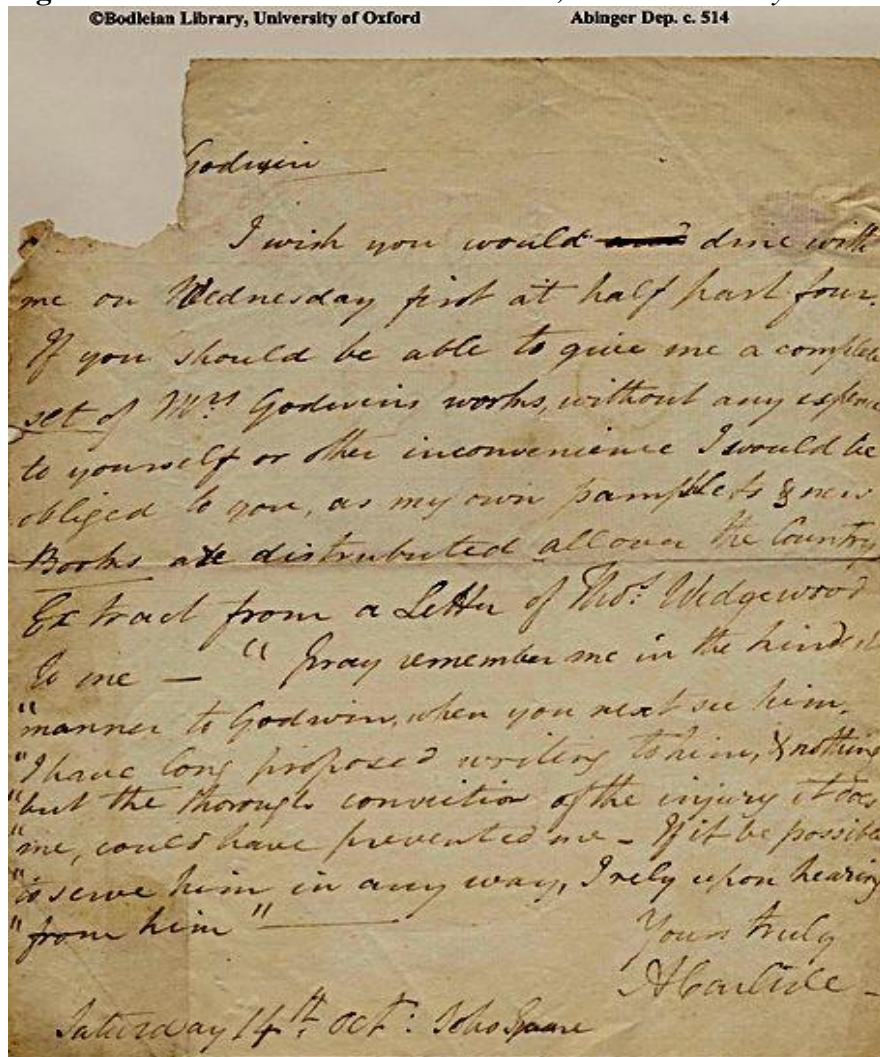 ©Bodleian Library, University of Oxford Abinger Dep. c. 514
Godwin
I wish you would dine with
me on Wednesday first at half past four.
If you should be able to give me a complete
set of Mrs Godwins works, without any expence
to yourself or other inconvenience I would be
obliged to you, as my own pamphlets & new
Books are distributed all over the Country
Extract from a Letter of Thos. Wedgewood
to me — "Pray remember me in the kindest
"manner to Godwin, when you next see him.
"I have long proposed writing to him, & nothing
"but the thorough conviction of the injury it does
"me, could have prevented me – If it be possible
"to serve him in any way, I rely upon hearing
"from him" —
Yours truly
ACarlisle –
Saturday 14th. Octr: Soho Square